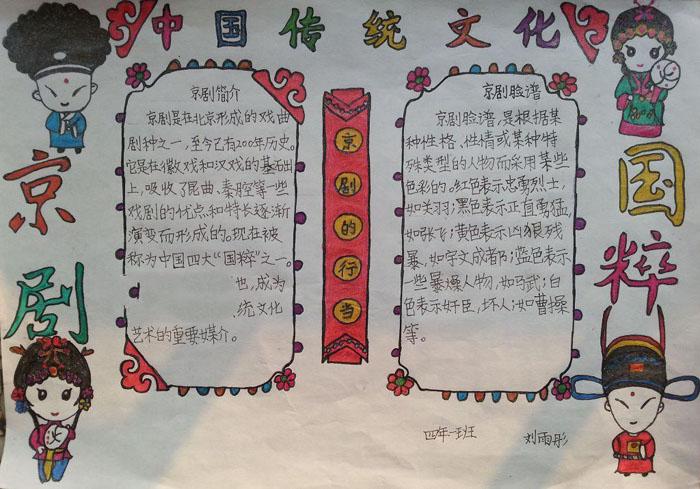 中国传统文化
京剧
国粹
京剧简介
京剧是在北京形成的戏曲
剧种之一,至今已有200年历史。
它是在徽戏和汉戏的基础
上,吸收了昆曲、秦腔等一些
戏剧的优点和特长逐渐
演变而形成的。现在被
称为中国四大“国粹”之一。
也,成为
统文化
艺术的重要媒介。
京剧的行当
京剧脸谱
京剧脸谱,是根据某
种性格、性情或某种特
殊类型的人物而采用某些
色彩的。红色表示忠勇烈士,
如关羽;黑色表示正直勇猛,
如张飞;黄色表示凶狠残
暴,如宇文成都;蓝色表示
一些暴燥人物,如马武;白
色表示奸臣,坏人;如曹操
等。
四年一班 刘雨彤